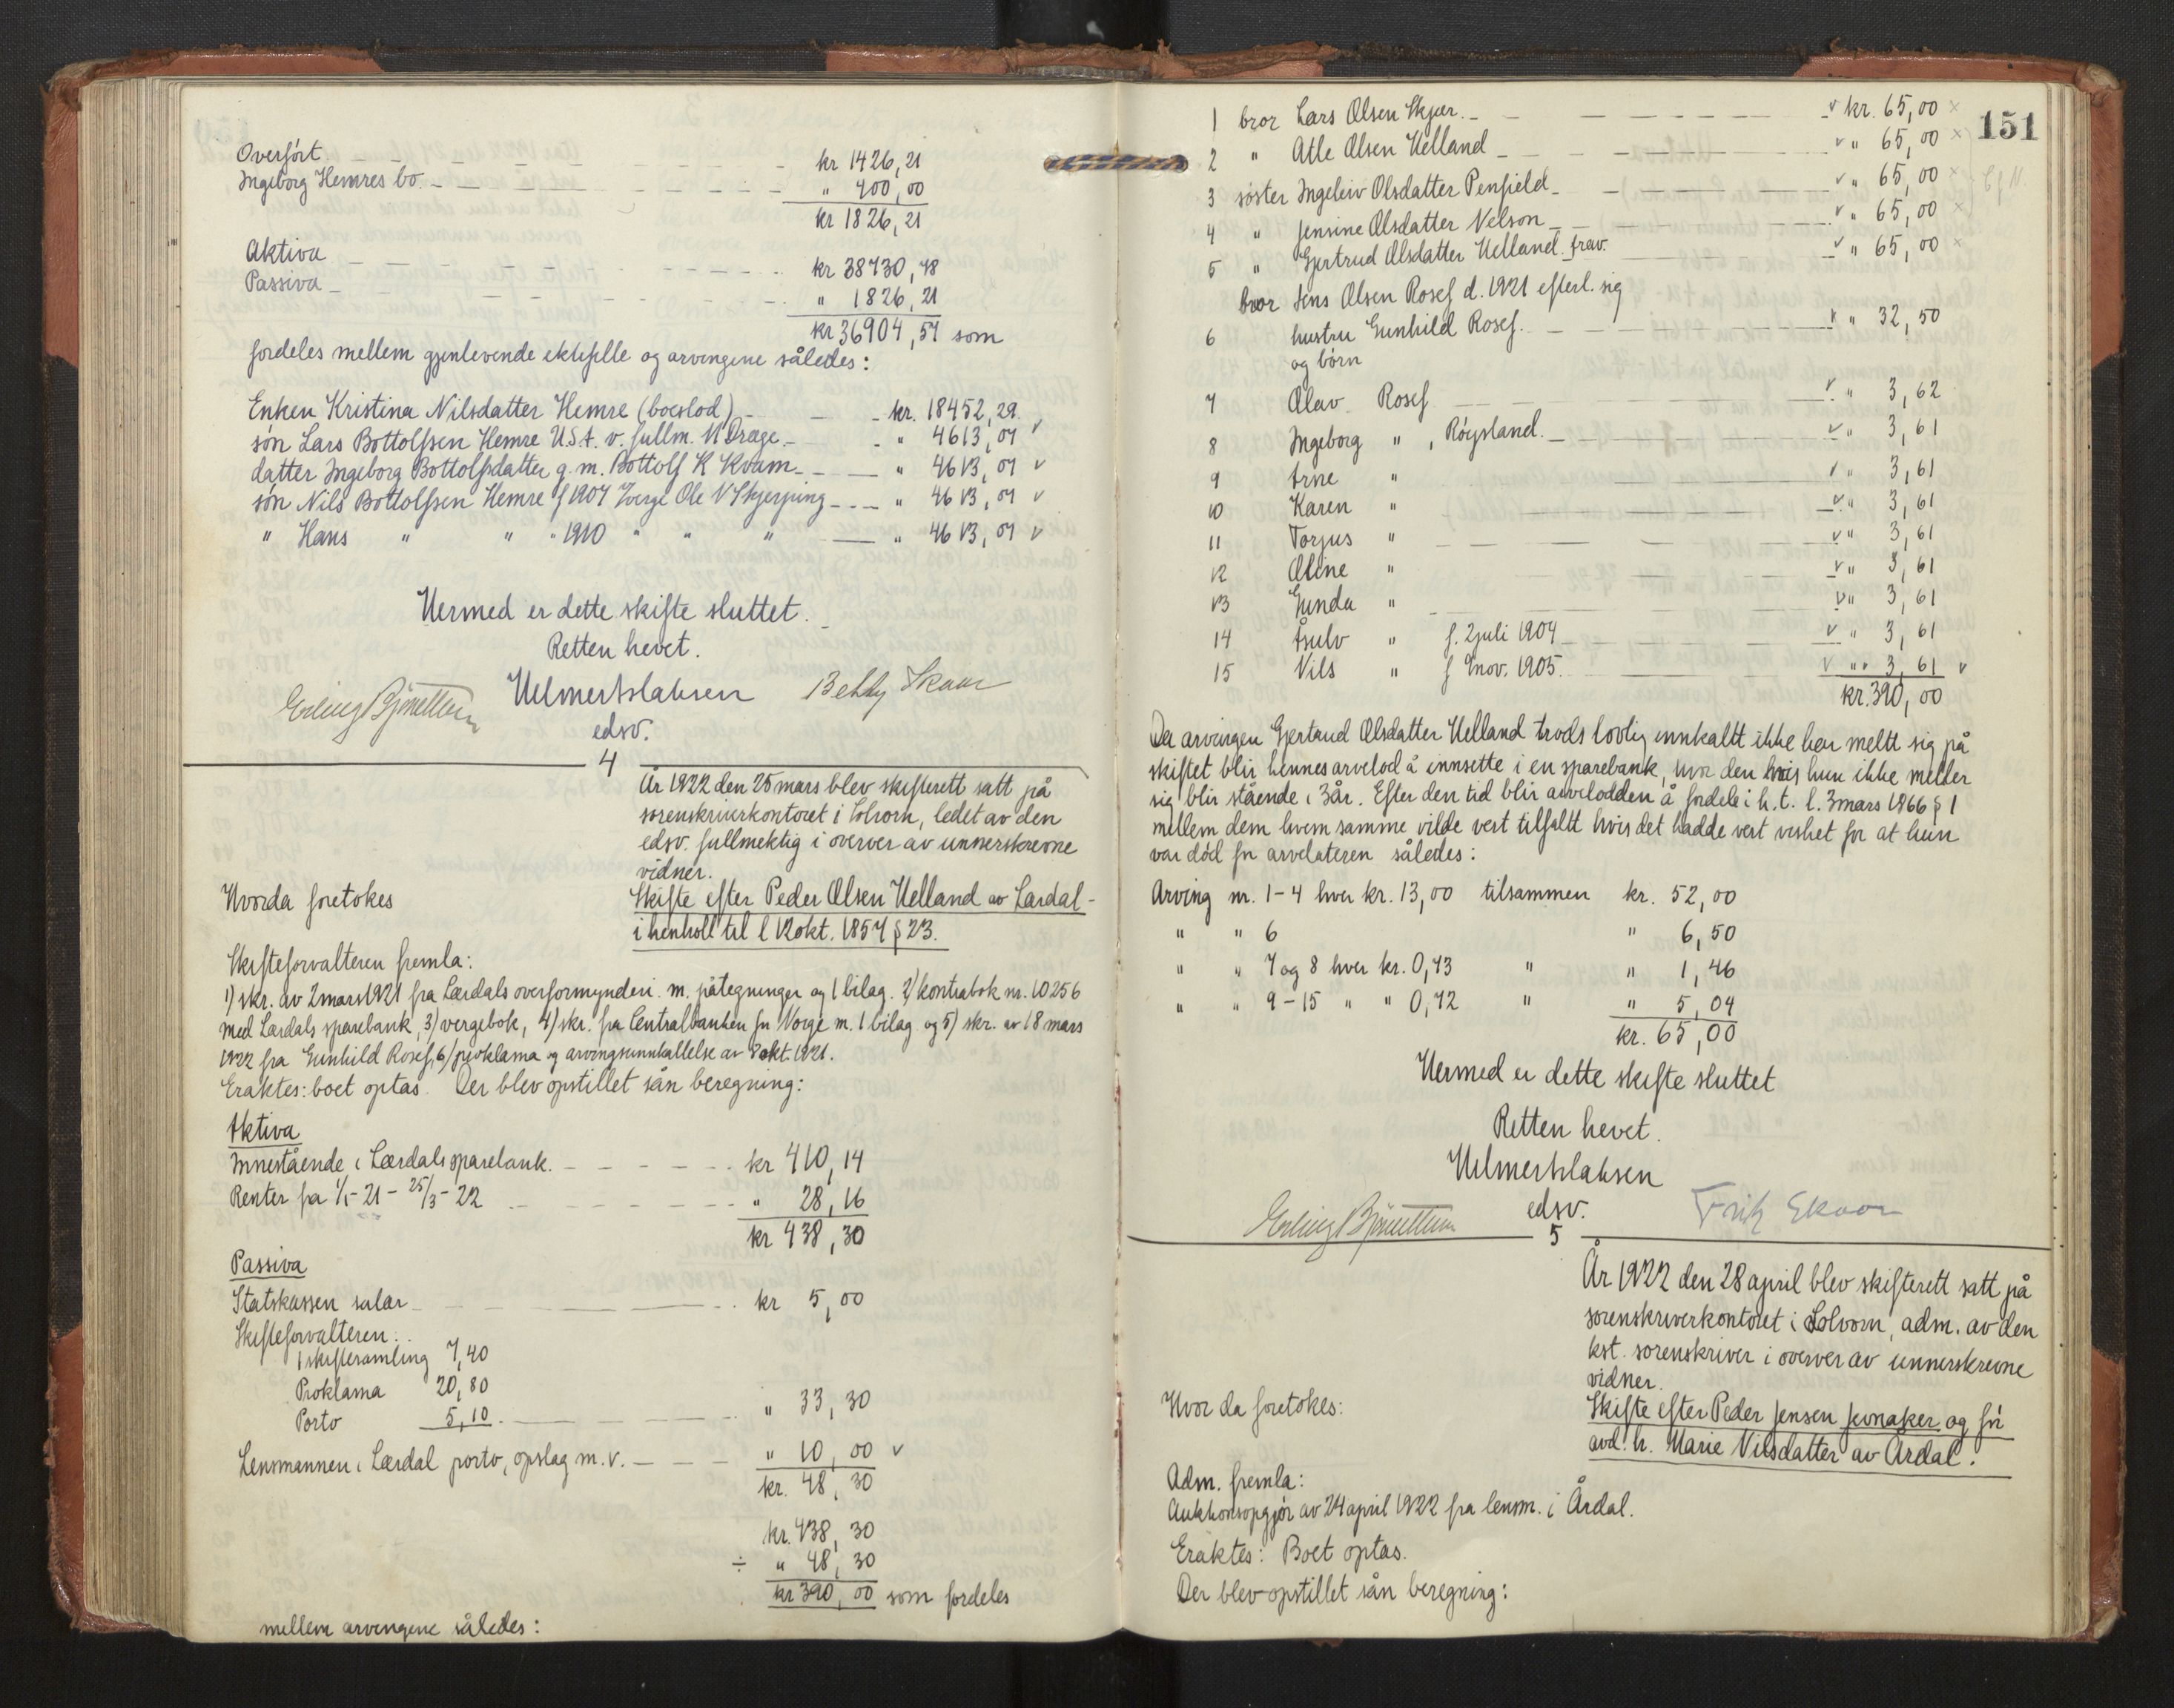 Overført kr 1426,21
Ingeborg Hemres bo. " 400,00
kr 1826,21
Aktiva kr 38730,78
Passiva " 1826,21
kr 36904,57 som
fordeles mellem gjenlevende ektefelle og arvingene således:
Enken Kristina Nilsdatter Hemre (boeslod) kr. 18452,29
søn Lars Bottolfsen Hemre U.S.A. v. fullm. N Dræge " 4613,07 v
datter Ingeborg Bottolfsdatter g. m. Bottolf K Kvam " 4613,07 v
søn Nils Bottolfsen Hemre f 1907 Verge Ole N Skjerping " 4613,07 v
" Hans " " " 1910 " " " " 4613,07 v
Hermed er dette skifte sluttet.
Retten hevet.
Erling Bjønettum Helmer Islaksen Betty Skaar
edsv.
4
År 1922 den 25 mars blev skifterett satt på
sorenskriverkontoret i Solvorn, ledet av den
edsv. fullmektig i overver av unnerskrevne
vidner.
Hvorda foretokes
Skifte efter Peder Olsen Helland av Lærdal
i henholl til l 12 okt. 1857 § 23.
Skifteforvalteren fremla:
1) skr. av 2 mars 1921 fra Lærdals overformynderi. m. påtegninger og 1 bilag. 2) kontrabok nr. 10256
med Lærdals sparebank, 3) vergebok, 4) skr. fra Centralbanken for Norge m. 1 bilag og 5) skr. av 18 mars
1922 fra Gunhild Rosef, 6) proklama og arvingsinnkallelse av 8 okt. 1921.
Eraktes: boet optas. Der blev opstillet sån beregning:
Aktiva
Innestående i Lærdals sparebank. kr 410,14
Renter fra 1/1-21 - 25/3-22 " 28,16
kr 438,30
Passiva
Statskassen salær kr 5,00
Skifteforvalteren:
1 skiftesamling 7,40
Proklama 20,80
Porto 5,10 " 33,30
Lensmannen i Lærdal porto, opslag m.v. " 10,00 v
kr. 48,30
kr. 438,30
÷ " 48,30
kr 390,00 som fordeles
mellem arvingene således:
151
1 bror Lars Olsen Skjær. v kr. 65,00 x
2 " Atle Olsen Helland v " 65,00 x
3 søster Ingeleiv Olsdatter Penfield v " 65,00 x
4 " Jensine Olsdatter Nelson v " 65,00 x
5 " Gjertrud Olsdatter Helland frav. v " 65,00 x
bror Jens Olsen Rosef d. 1921 efterl. sig
6 hustru Gunhild Rosef. v " 32,50
og børn
7 Olav Rosef v " 3,62
8 Ingeborg " , Røysland. v " 3,61
9 Arne " v " 3,61
10 Karen " v " 3,61
11 Torjus " v " 3,61
12 Oline " v " 3,61
13 Gunda " v " 3,61
14 Åsulv " f. 2 juli 1904 v " 3,61
15 Nils " f 9 nov. 1905. v " 3,61 v
kr. 390,00
Da arvingen Gjertrud Olsdatter Helland trods lovlig innkallt ikke har meltt sig på
skiftet blir hennes arvelod å innsette i en sparebank, hvor den hvis hun ikke meller
sig blir stående i 3 år. Efter den tid blir arvelodden å fordele i h. t. l. 3 mars 1866 § 1
mellem dem hvem samme vilde vert tilfallt hvis det hadde vert vishet for at hun
var død før arvelateren således:
Arving nr. 1-4 hver kr. 13,00 tilsammen kr. 52,00
" " 6 " 6,50
" " 7 og 8 hver kr. 0,73 " " 1,46
" " 9-15 " " 0,72 " " 5,04
kr. 65,00
Hermed er dette skifte sluttet
Retten hevet.
Helmer Islaksen
edsv.
Erling Bjønettum Fritz Skaar
5
År 1922 den 28 april blev skifterett satt på
sorenskriverkontoret i Solvorn, adm. av den
kst. sorenskriver i overver av unnerskrevne
vidner.
Hvor da foretokes:
Skifte efter Peder Jensen Jevnaker og før
avd. h. Marie Nilsdatter av Årdal.
Adm. fremla:
Auktionsopgjør av 24 april 1922 fra lensm. i Årdal.
Eraktes: Boet optas.
Der blev opstillet sån beregning: